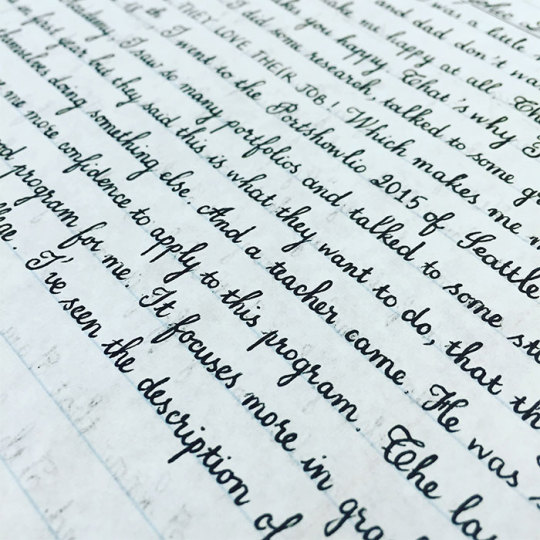 was a little
and dad don't wa
make me happy at all. Th
you happy. That's why I
I did some research, talked to some gr
THEY LOVE THEIR JOB! Which makes me m
I went to the Portshowlio 2015 of Seattle
I saw so many portfolios and talked to some stu
first year but they said this is what they want to do, that th
themselves doing something else. And a teacher came. He was s
me more confidence to apply to this program. The las
program for me. It focuses more in gra
I've seen the description of